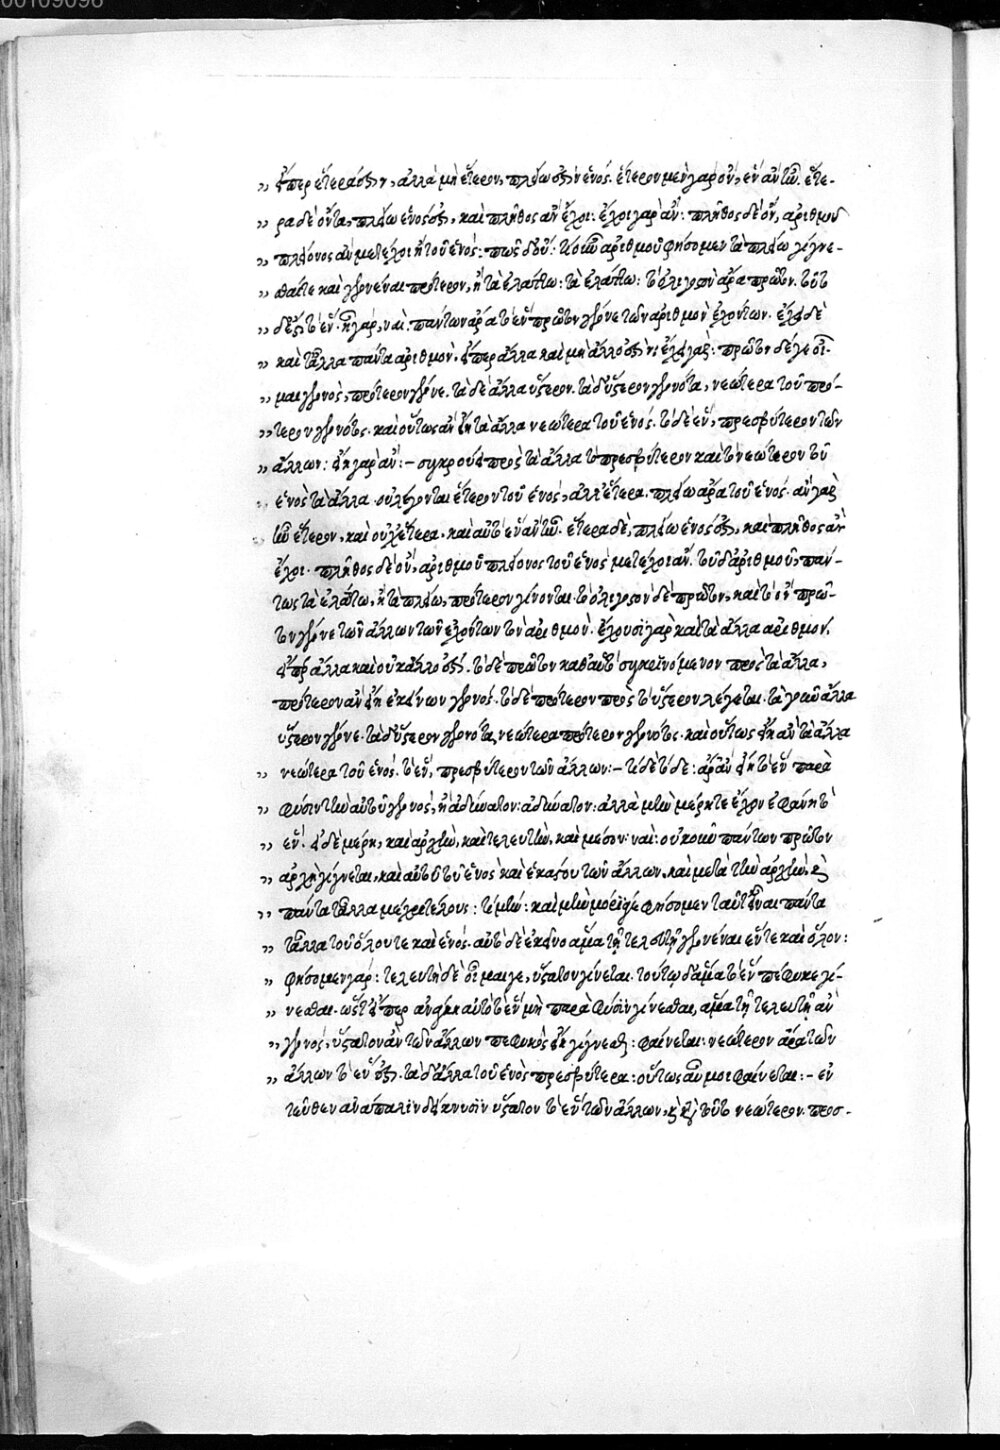 00109096
„ εἴπερ ἕτερά ἐστιν, ἀλλὰ μὴ ἕτερον, πλείω ἐστὶν ἑνός. ἕτερον μὲν γὰρ ὂν, ἓν ἂν ἦν. ἕτε-
„ ρα δὲ ὄντα, πλείω ἑνός ἐστι, καὶ πλῆθος ἂν ἔχοι: ἔχοι γὰρ ἄν: πλῆθος δὲ ὂν, ἀριθμοῦ
„ πλείονος ἂν μετέχοι ἢ τοῦ ἑνός: πῶς δ' οὔ: τί οὖν ἀριθμοῦ φήσομεν τὰ πλείω γίγνε-
„ σθαί τε καὶ γεγονέναι πρότερον, ἢ τὰ ἐλάττω: τὰ ἐλάττω: τὸ ὀλίγιστον ἄρα πρῶτον. τοῦτο
„ δ' ἐστὶ τὸ ἕν. ἦ γάρ; ναί: πάντων ἄρα τὸ ἓν πρῶτον γέγονε τῶν ἀριθμὸν ἐχόντων. ἔχει δὲ
„ καὶ τἆλλα πάντα ἀριθμόν. εἴπερ ἄλλα καὶ μὴ ἄλλο ἐστίν: ἔχει γάρ: πρῶτον δέ γε οἶ-
„ μαι γεγονὸς, πρότερον γέγονε. τὰ δὲ ἄλλα ὕστερον. τὰ δ' ὕστερον γεγονότα, νεώτερα τοῦ πρό-
„ τερον γεγονότος. καὶ οὕτως ἂν εἴη τὰ ἄλλα νεώτερα τοῦ ἑνός. τὸ δὲ ἓν, πρεσβύτερον τῶν
„ ἄλλων: εἴη γὰρ ἄν:– συγκρούει πρὸς τὰ ἄλλα τὸ πρεσβύτερον καὶ τὸ νεώτερον τοῦ
„ ἑνὸς τὰ ἄλλα. οὐ λέγονται ἕτερον τοῦ ἑνὸς, ἀλλ' ἕτερα. πλείω ἄρα τοῦ ἑνός. ἂν γὰρ
„ ἦν ἕτερον, καὶ οὐχ ἕτερα, καὶ αὐτὸ ἓν ἂν ἦν. ἕτερα δὲ, πλείω ἑνός ἐστι, καὶ πλῆθος ἂν
ἔχοι. πλῆθος δὲ ὂν, ἀριθμοῦ πλείονος τοῦ ἑνὸς μετέχοι ἄν. τοῦ δ' ἀριθμοῦ, πάν-
τως τὰ ἐλάττω, ἢ τὰ πλείω, πρότερον γίνονται. τὸ ὀλίγιστον δὲ πρῶτον, καὶ τὸ ἓν πρῶ-
τον γέγονε τῶν ἄλλων τῶν ἐχόντων τὸν ἀριθμόν. ἔχουσι γὰρ καὶ τὰ ἄλλα ἀριθμόν.
εἴπερ ἄλλα καὶ οὐκ ἄλλο ἐστί. τὸ δὲ πρῶτον καθ' αὑτὸ συγκρινόμενον πρὸς τὰ ἄλλα,
πρότερον ἂν εἴη ἐκείνων γεγονός. τὸ δὲ πρότερον πρὸς τὸ ὕστερον λέγεται. τὰ γοῦν ἄλλα
ὕστερον γέγονε. τὰ δ' ὕστερον γεγονότα, νεώτερα πρότερον γεγονότος. καὶ οὕτως εἴη ἂν τὰ ἄλλα
„ νεώτερα τοῦ ἑνός. τὸ ἓν, πρεσβύτερον τῶν ἄλλων:– τί δὲ τόδε: ἆρ' ἂν εἴη τὸ ἓν παρὰ
„ φύσιν τὴν αὑτοῦ γεγονός, ἢ ἀδύνατον: ἀδύνατον: ἀλλὰ μὴν μέρη γε ἔχον ἐφάνη τὸ
„ ἕν. εἰ δὲ μέρη, καὶ ἀρχὴν, καὶ τελευτὴν, καὶ μέσον: ναί: οὐκοῦν πάντων πρῶτον
„ ἀρχὴ γίγνεται, καὶ αὐτοῦ τοῦ ἑνὸς καὶ ἑκάστου τῶν ἄλλων. καὶ μετὰ τὴν ἀρχὴν, καὶ
„ πάντα τἆλλα μέχρι τέλους: τί μήν: καὶ μὴν μόριά γε φήσομεν ταῦτ' εἶναι πάντα
„ τἆλλα τοῦ ὅλου τε καὶ ἑνός. αὐτὸ δὲ ἐκεῖνο ἅμα τῇ τελευτῇ γεγονέναι ἕν τε καὶ ὅλον:
„ φήσομεν γάρ: τελευτὴ δὲ οἶμαί γε, ὕστατον γίνεται. τούτῳ δ' ἅμα τὸ ἓν πέφυκε γί-
„ νεσθαι. ὥστ' εἴπερ ἀνάγκη αὐτὸ τὸ ἓν μὴ παρὰ φύσιν γίνεσθαι, ἅμα τῇ τελευτῇ ἂν
„ γεγονὸς, ὕστατον ἂν τῶν ἄλλων πεφυκὸς εἴη γίγνεσθαι: φαίνεται: νεώτερον ἄρα τῶν
„ ἄλλων τὸ ἕν ἐστι. τὰ δ' ἄλλα τοῦ ἑνὸς πρεσβύτερα: οὕτως αὖ μοι φαίνεται:– ἐν
τεῦθεν ἀνάπαλιν δείκνυσιν ὕστατον τὸ ἓν τῶν ἄλλων, καὶ διὰ τοῦτο νεώτερον. προσ-